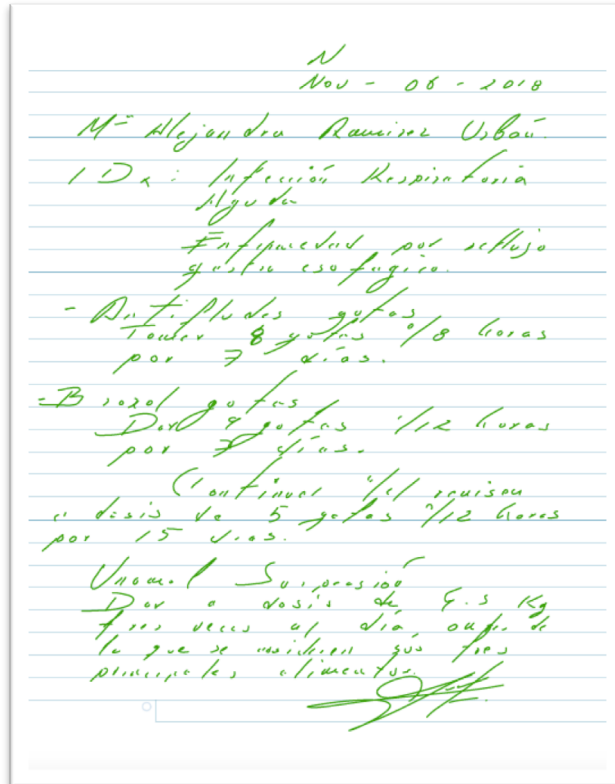 N
Nov - 06 - 2018
Mª Alejandra Ramirez
IDx: Infección Respiratoria
Aguda
Enfermedad por reflujo
gastro esofagico.
- Antifludes gotas
Tomar 8 gotas c/8 horas
por 7 días.
- Broxol gotas
Dar 4 gotas c/12 horas
por 7 días.
Continuar
a dosis de 5 gotas c/12 horas
por 15 días.
Suspensión
Dar a dosis de Kg
tres veces al día de
la que se sus tres
principales alimentos.